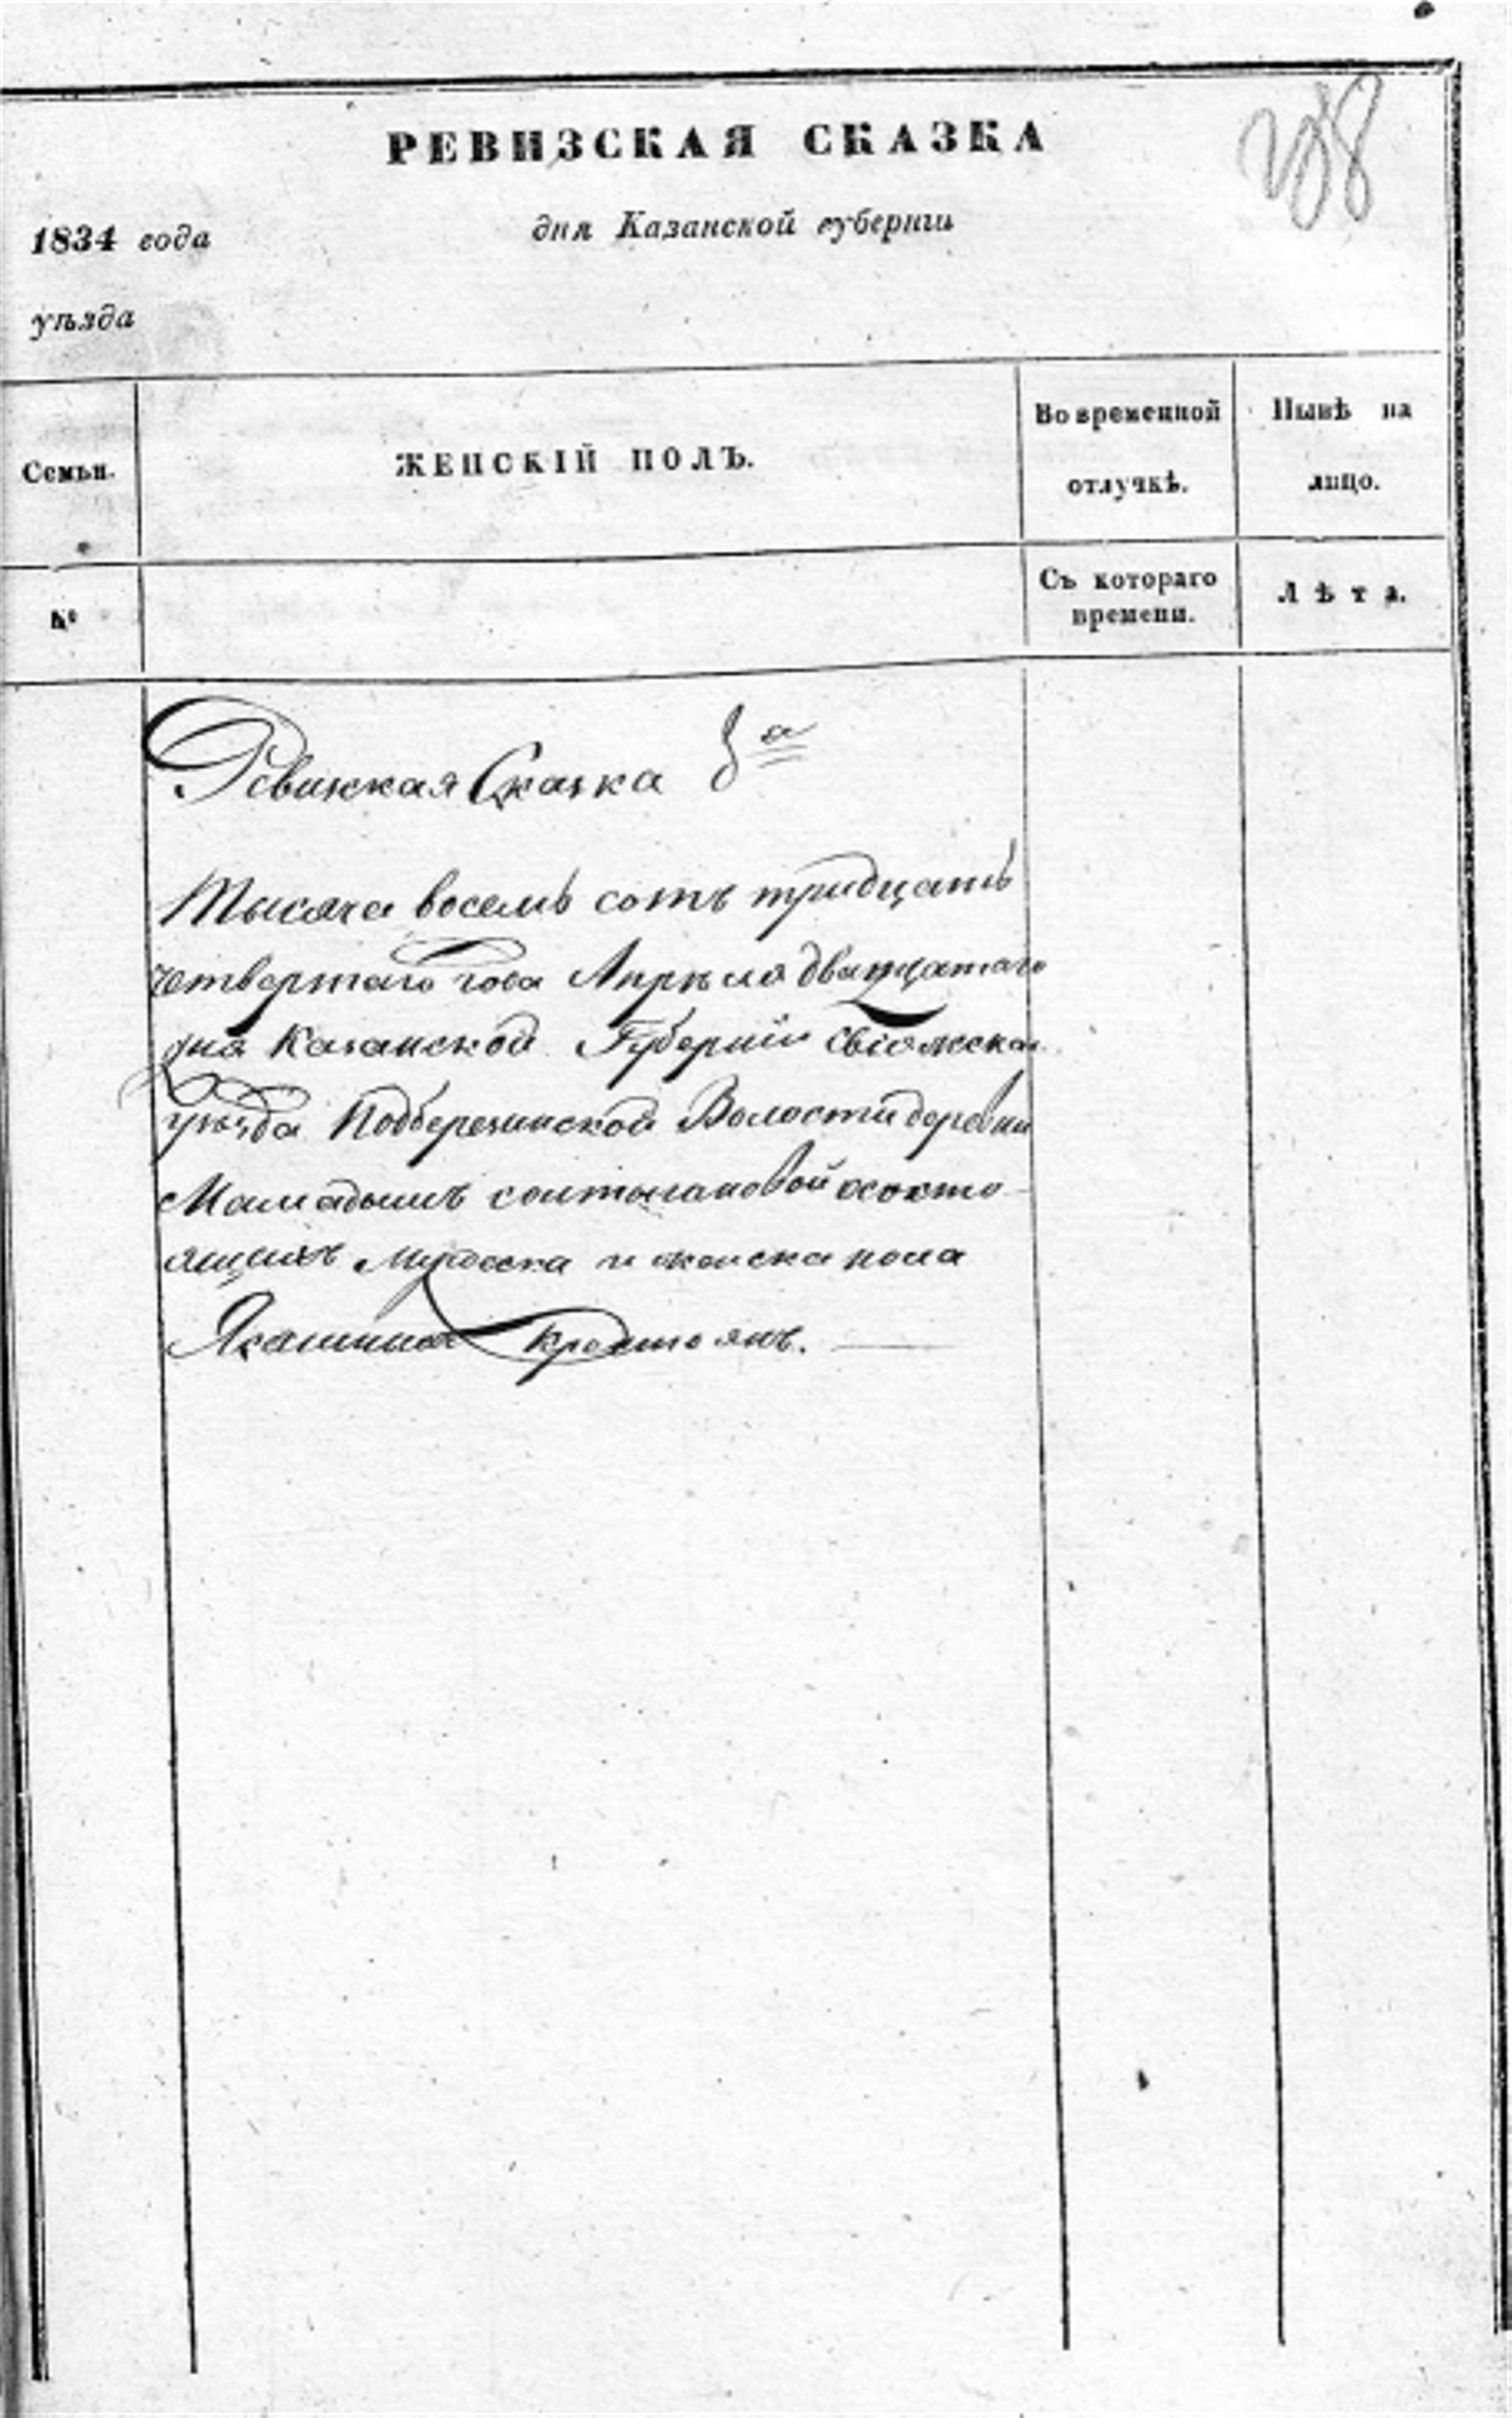 РЕВИЗСКАЯ СКАЗКА
1834 года
дня Казанской губернии
уѣзда
Семьи.
ЖЕНСКІЙ ПОЛЪ.
Во временной отлучкѣ.
Нынѣ на лицо.
№
Съ котораго времени.
Лѣта.
Ревиская Сказка
Тысяча восемь сотъ тридцать
четвертаго года Апрѣля дватцатаго
дня Казанской Губернии Свіяжска
уѣзда Подберезинской Волости деревни
Мамадышъ солтыгановой осостo
ящихъ Мужеска и женска пола
Ясашныхъ крестьянъ.